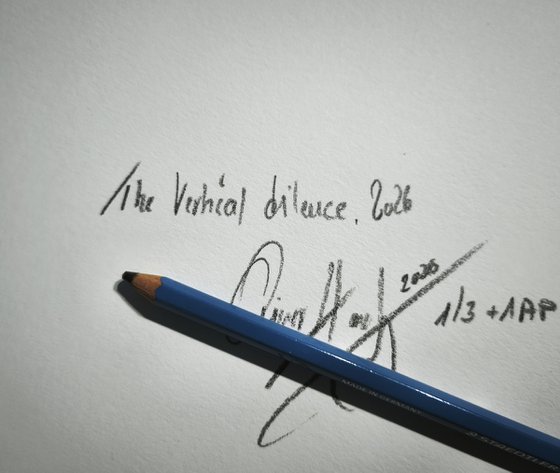 The Vertical Silence. 2026
2026
1/3 + 1 AP
MADE IN GERMANY
STAEDTLER